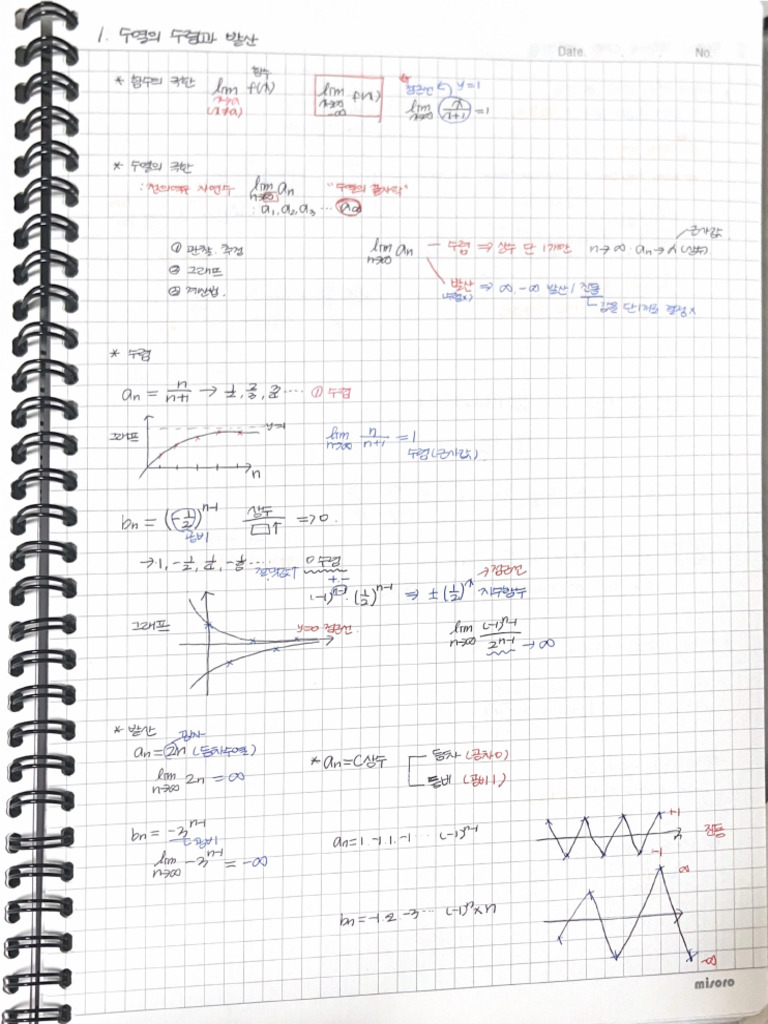 1. 수열의 수렴과 발산
Date. No.
* 함수의 극한 lim f(x) 함수
x→a
(x≠a)
lim f(x)
x→∞
-∞
점근선 y=1
lim x/(x+1) = 1
x→∞
* 수열의 극한
: 정의역 자연수 lim an "수열의 끝자락"
n→∞
: a1, a2, a3 ... a∞
① 관찰. 추정
② 그래프
③ 계산법.
lim an — 수렴 ⇒ 상수 단 1개만 n→∞. an→α(상수) 극한값
n→∞
발산 ⇒ ∞, -∞ 발산 / 진동
(수렴x)
값을 단 1개로 결정x
* 수렴
an = n/(n+1) → 1/2, 2/3, 3/4 .... ① 수렴
그래프 y=1
n
lim n/(n+1) = 1
n→∞
수렴(극한값)
bn = (-1/2)^(n-1) 상수/□↑ ⇒ 0.
공비
→ 1, -1/2, 1/4, -1/8 .... 0 수렴
+ -
(-1)^(n-1) · (1/2)^(n-1) ⇒ ± (1/2)^x 지수함수
→ 점근선
그래프 y=0 점근선
lim (-1)^(n-1)/2^(n-1) → ∞
n→∞
* 발산
공차
an = 2n (등차수열)
lim 2n = ∞
n→∞
* an = C상수
등차 (공차 0)
등비 (공비 1)
bn = -3^(n-1)
공비
lim -3^(n-1) = -∞
n→∞
an = 1. -1. 1. -1 ... (-1)^(n-1)
+1
진동
-1
bn = -1. 2. -3 ... (-1)^n × n
∞
-∞
misoro